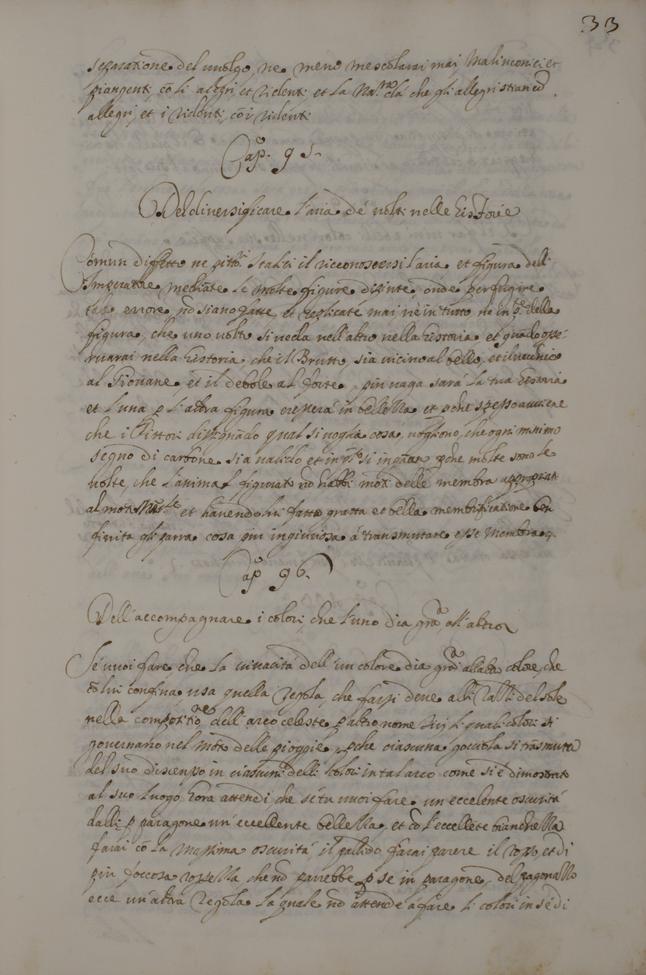 33
separatione del vuolgo, ne meno mescolarai mai Malinconici et
piangenti, cõ li alegri, et ridenti et la che gli allegri stian cõ
allegri, et i ridenti, cõ i ridenti
Cap.º 95.
Del diversificare l'aria de volti nelle Historie
Comun diffetto ne pittori Italici il riconoscersi l'aria et figura dell'
Imperatore mediãte le molte figure dipinte, onde per fugire
tale errore, nõ siano fatte, et replicate mai ne in tutto, ne in p.te della
figura, che uno volto si veda nell'altro nella historia et quãdo osse-
rvarai nella historia che il Brutto sia vicino al bello et il vecchio
al Giovane, et il debole al forte, piu vaga sara la tua historia
et l'una p l'altra figura crescerà in bellezza et pche spesso aviene
che i Pittori disegnãdo qual si voglia cosa, vogliono, che ogni minimo
segno di carbone sia valido et in q.to si ingãnano pche molte sono le
volte, che l'animal figurato nõ habbi moti delle membra appropriati
al moto et havendo lui fatta gratta et bella membrificatione ben
finita gli parra cosa ingiuriosa à transmutare esse membra
Cap.º 96.
Dell'accompagnare i colori, che l'uno dia gra all'altro
Se vuoi fare che la vicinità dell'un colore dia grã all'altro colore, che
cõ lui confina usa quella regola, che farsi vede alli raggi del sole
nella compositione dell'arco celeste p altro nome Iris li quali colori si
governano nel moto delle pioggie, pche ciascuna gocciola si trasmuta
del suo discenso in ciascuni delli colori in tal arco come s'è dimostrato
al suo luogo, hora attendi, che se tu vuoi fare un eccelente oscurità
dalli p paragone un'eccellente bellezza, et cõ l'eccellẽte bianchezza
farai cõ la Massima oscurità il pallido farai parere il rosso, et di
piu focosa rossezza che nõ parrebbe p se in paragone del pagonazzo
ecce un'altra regola la quale nõ attende à fare li colori in se di